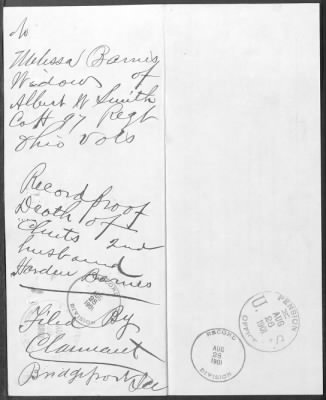 To
Melissa Barnes
Widow of
Albert W Smith
Co H 97 Regt
Ohio Vols
Record proof
Death of
Clmts 2nd
husband
Harden Barnes
Filed By
Claimant
Bridgeport
RECORD
DIVISION
RECORD
AUG
26
1901
DIVISION
U. S. PENSION OFFICE
AUG
26
1901